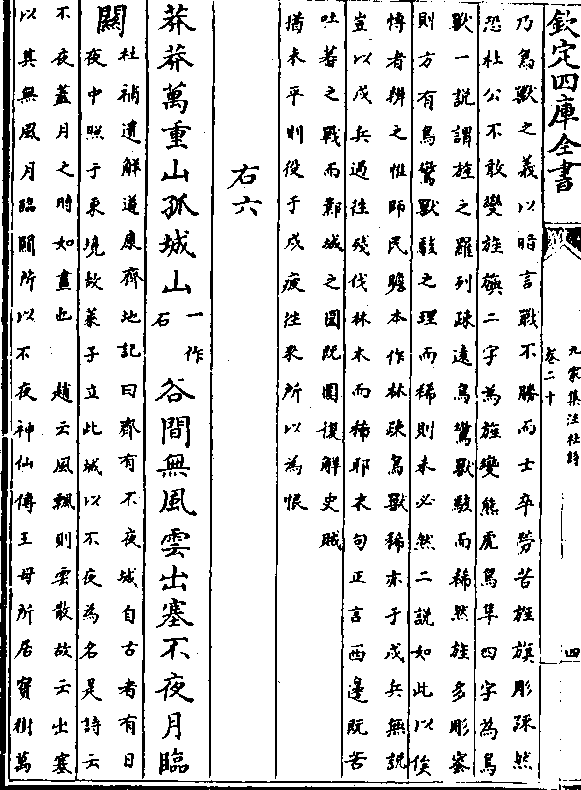 欽定四庫全書
九家集注杜詩
卷二十
四
乃鳥獸之義以暗言戰不勝而士卒勞苦旌旗彫疎然
恐杜公不敢變旌旗二字為旌變熊虎鳥隼四字為鳥
獸一說謂旌之羅列疎遠鳥驚獸駭而稀然旌多彫塞
則方有鳥驚獸駭之理而稀則未必然二說如此以俟
愽者辨之惟師民瞻本作林疎鳥獸稀亦于戍兵無說
豈以戍兵過往殘伐林木而稀耶末句正言西邊既苦
吐蕃之戰而鄴城之圍既圍復解史賊
猶未平則役于戍疲往來所以為恨
右六
莽莽萬重山孤城山一作石谷間無風雲出塞不夜月臨
闗
杜補遺解道康齊地記曰齊有不夜城自古者有日
夜中照于東境故萊子立此城以不夜為名是詩云
不夜蓋月之時如晝也 趙云風飄則雲散故云出塞
以其無風月臨闗所以不夜神仙傳王母所居寳樹萬